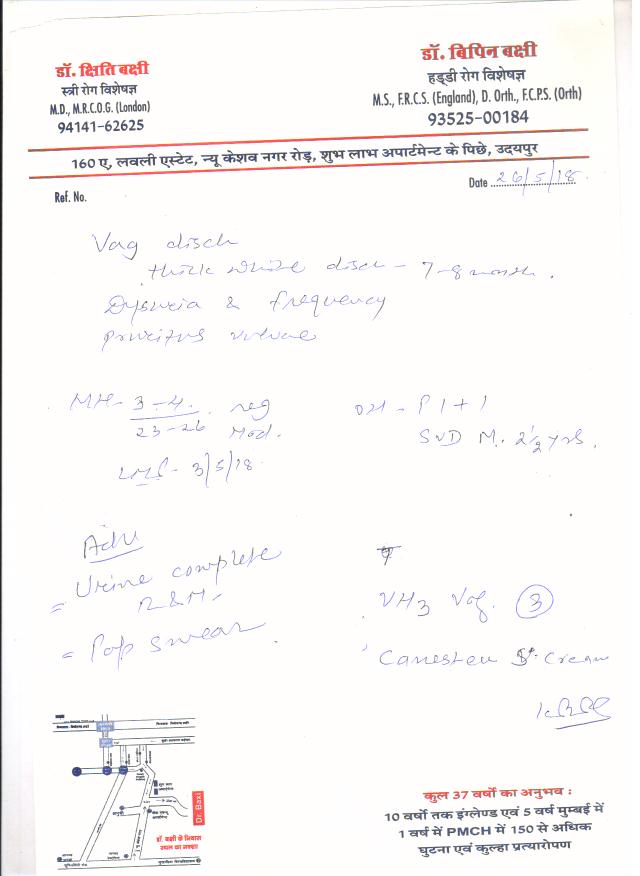 डॉ. क्षिति बक्षी
स्त्री रोग विशेषज्ञ
M.D., M.R.C.O.G. (London)
94141-62625
डॉ. बिपिन बक्षी
हड्डी रोग विशेषज्ञ
M.S., F.R.C.S. (England), D. Orth., F.C.P.S. (Orth)
93525-00184
160 ए, लवली एस्टेट, न्यू केशव नगर रोड़, शुभ लाभ अपार्टमेन्ट के पिछे, उदयपुर
Ref. No.
Date 26/5/18
Vag disch
thick white disch - 7-8 month.
Dysuria & frequency
pruritus vulvae
MH- 3-4 reg
23-26 Mod.
LMP - 3/5/18
OH - P1+1
SVD M. 2½ yrs.
Adv
= Urine complete
R&M
= Pap smear
VH3 Vag. 3
Canesten Cream
Dr. Baxi
डॉ. बक्षी के निवास
स्थल का नक्शा
कुल 37 वर्षो का अनुभव :
10 वर्षो तक इंग्लेण्ड एवं 5 वर्ष मुम्बई में
1 वर्ष में PMCH में 150 से अधिक
घुटना एवं कुल्हा प्रत्यारोपण